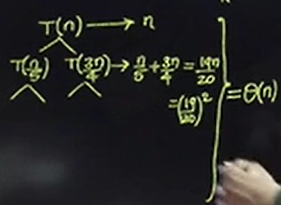 T(n) → n
T(n/5) T(3n/4) → n/5 + 3n/4 = 19n/20
= (19/20)² = Θ(n)